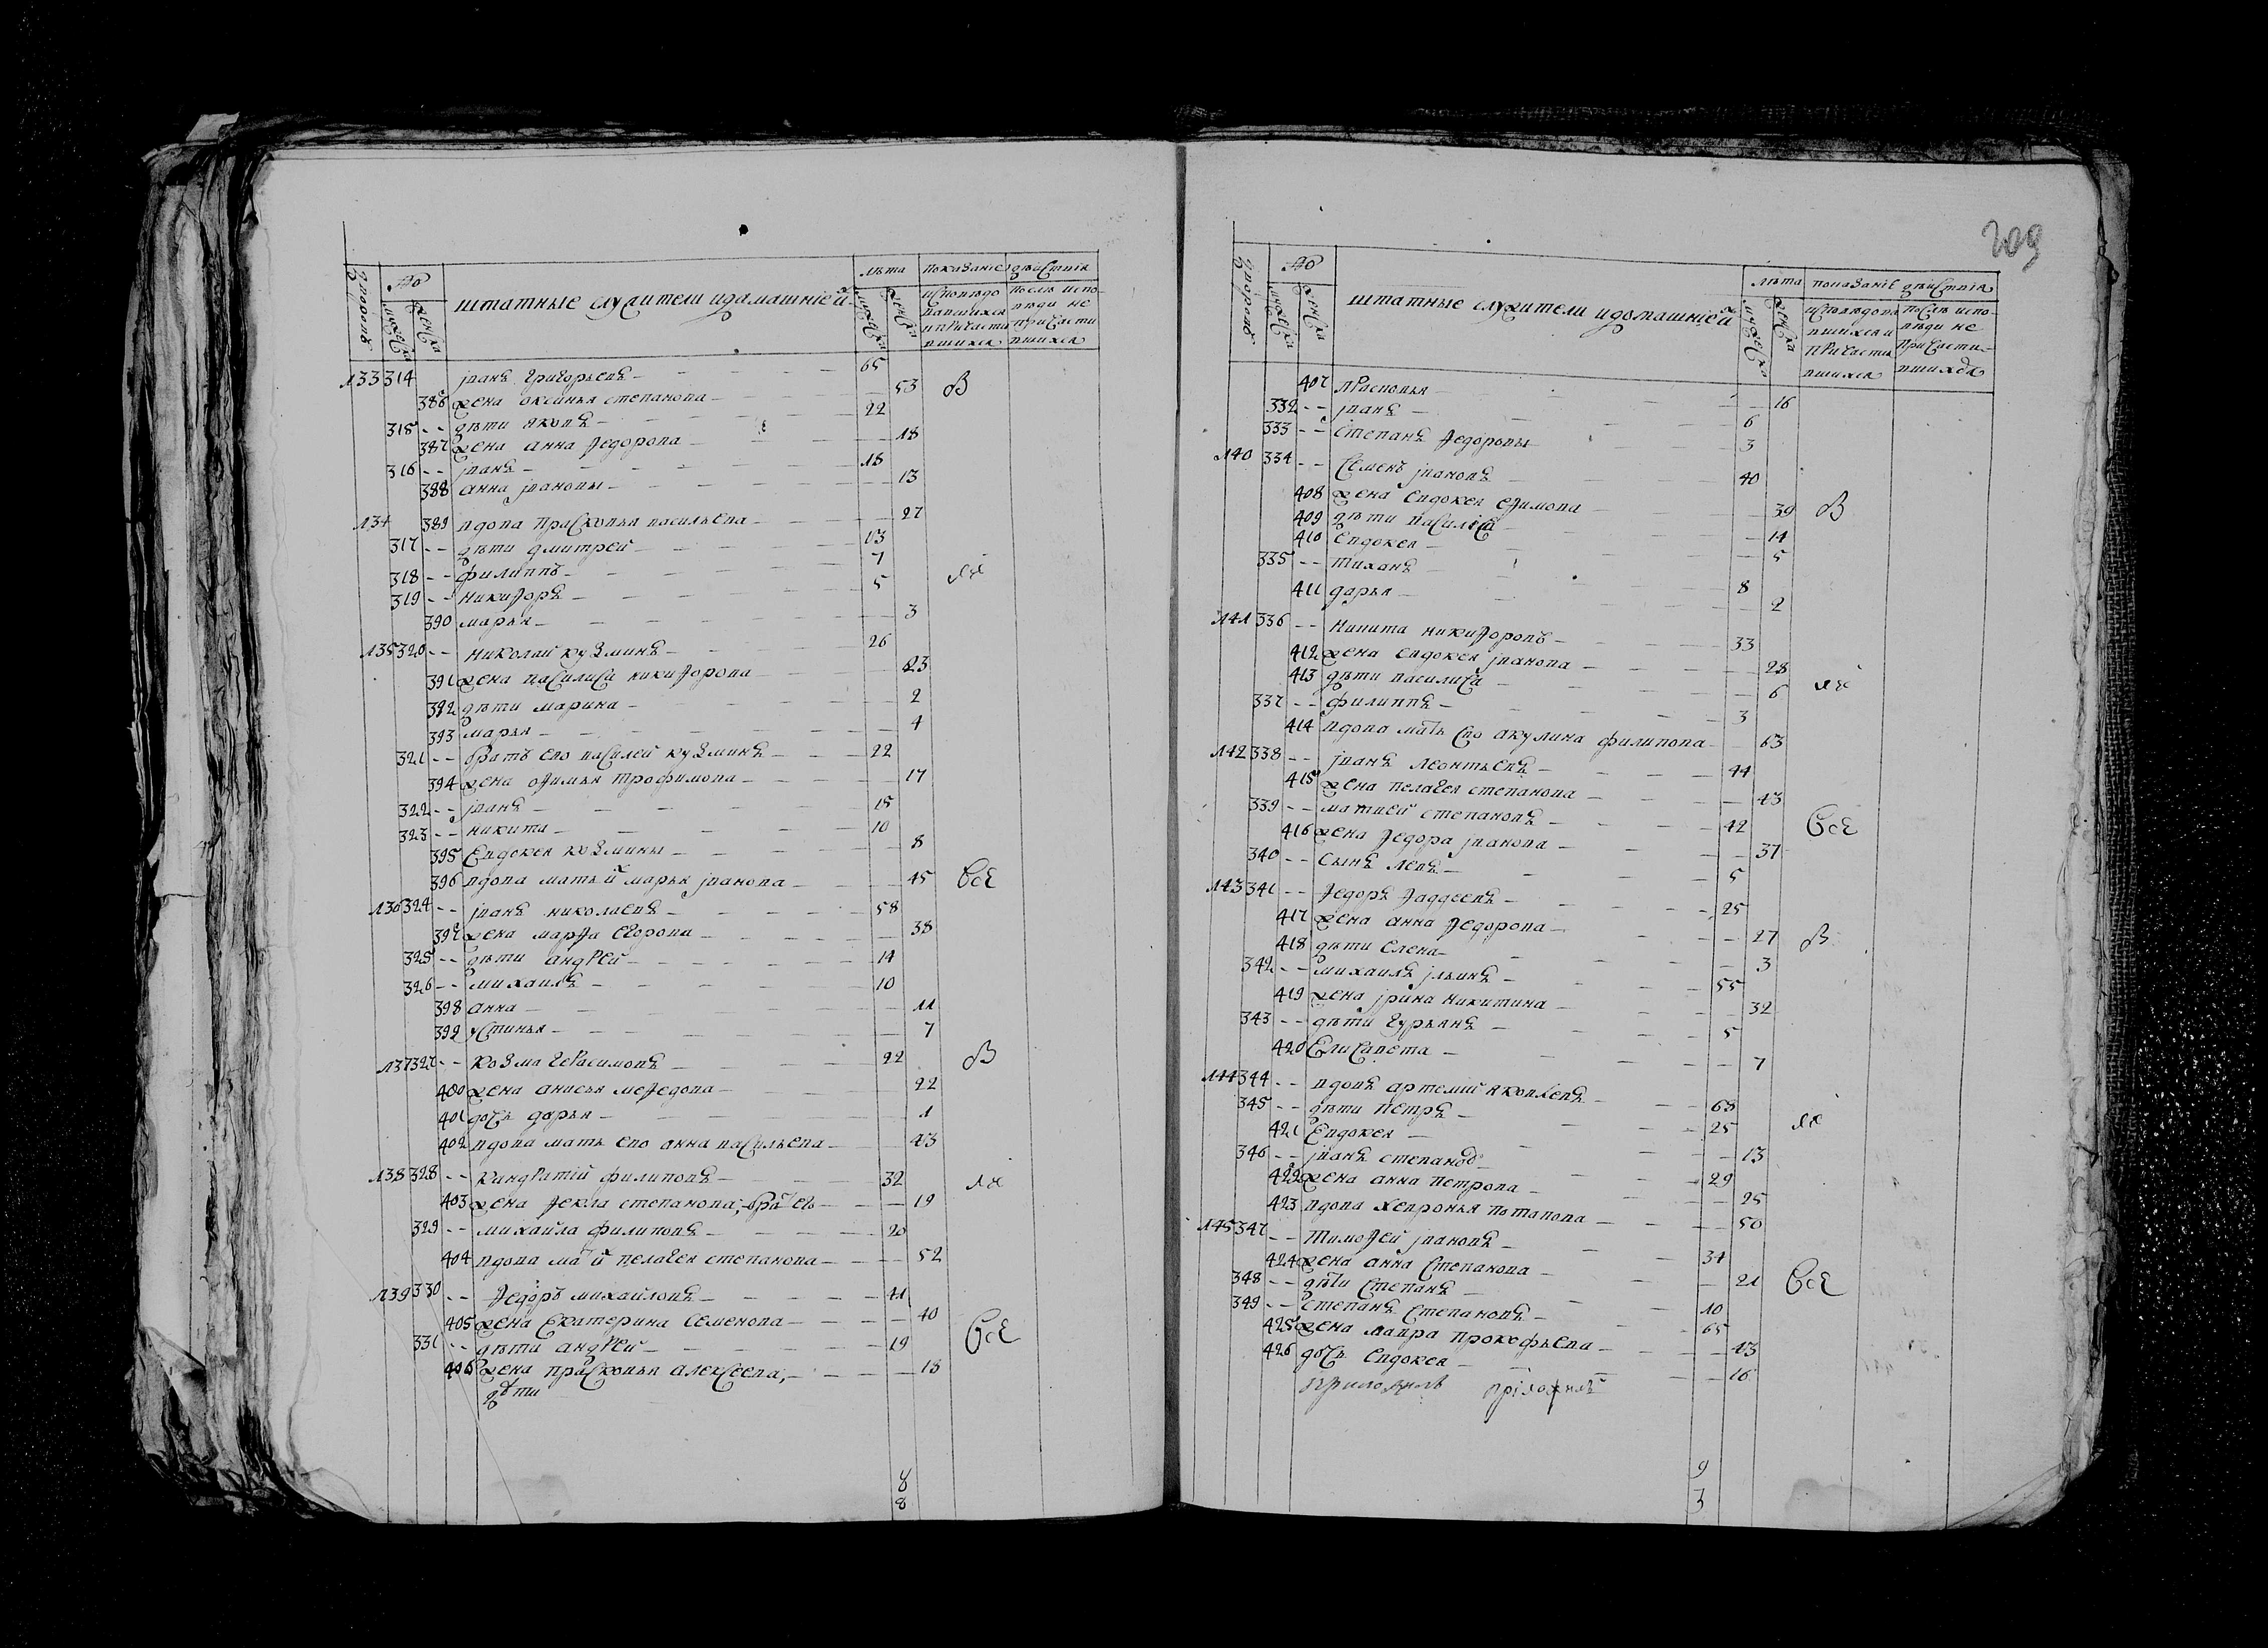 209
дворовъ № штатные служители идамашніе ихъ лѣта показаніе дѣиствия
мужеска женска мужеска женска исповѣдо послѣ испо-
вавшихся вѣди не
и причасти причасти
вшихся вшихся
133 314 іванъ григорьевъ 65
386 жена оксинья степанова 53 В
315 дѣти яковъ 22
387 жена анна федорова 18
316 іванъ 18
388 анна івановы 13
134 389 вдова прасковья васильева 27
317 дѣти дмитрей 13
318 филиппъ 7
319 никифоръ 5
390 марья 3
135 320 николай кузминъ 26
391 жена василиса никифорова 23
392 дѣти марина 2
393 марья 4
321 братъ ево василей кузминъ 22
394 жена офимья трофимова 17
322 іванъ 15
323 никита 10
395 Евдокея козмины 8
396 вдова мать й марья іванова 45 Всѣ
136 324 іванъ николаевъ 58
397 жена марфа Егорова 38
325 дѣти андрей 14
326 михаилъ 10
398 анна 11
399 устинья 7
137 327 козма герасимовъ 22 В
400 жена анисья мефедова 22
401 дочь дарья 1
402 вдова мать ево анна васильева 43
138 328 кандратій филиповъ 32
403 жена фекла степанова, братъ ево 19
329 михаила филиповъ 20
404 вдова мать й пелагея степанова 52
139 330 федоръ михайловъ 41
405 жена Екатерина Семенова 40
331 дѣти андрей 19 Всѣ
406 жена прасковья алексеева, 18
дѣти
8
8
дворовъ № штатные служители идомашніе ихъ лѣта показаніе дѣиствия
мужеска женска мужеска женска исповѣдова послѣ испо-
вшихся и вѣди не
причасти причасти-
вшихся вшихся
407 прасковья 16
332 іванъ 6
333 степанъ федоровы 3
140 334 Семенъ івановъ 40
408 жена Евдокея ефимова 39 В
409 дѣти василиса 14
410 Евдокея 5
335 тиханъ 8
411 дарья 2
141 336 никита никифоровъ 33
412 жена Евдокея іванова 28
413 дѣти василиса 6
337 филиппъ 3
414 вдова мать ево акулина филипова 63
142 338 іванъ леонтьевъ 44
415 жена пелагея степанова 43
339 матвей степановъ 42 Всѣ
416 жена федора іванова 37
340 сынъ левъ 5
143 341 федоръ фаддеевъ 25
417 жена анна федорова 27 В
418 дѣти Елена 3
342 михаилъ ільинъ 55
419 жена ірина никитина 32
343 дѣти гурьянъ 5
420 Елисавета 7
144 344 вдовъ артемий яковлевъ 68
345 дѣти Петръ 25
421 Евдокея 13
346 іванъ степановъ 29
422 жена анна петрова 25
423 вдова хевронья потапова 50
145 347 тимофей івановъ 34
424 жена анна Степанова 21 Всѣ
348 дѣти Степанъ 10
349 степанъ Степановъ 65
425 жена мавра прокофьева 43
426 дочь Евдокея 16
9
3